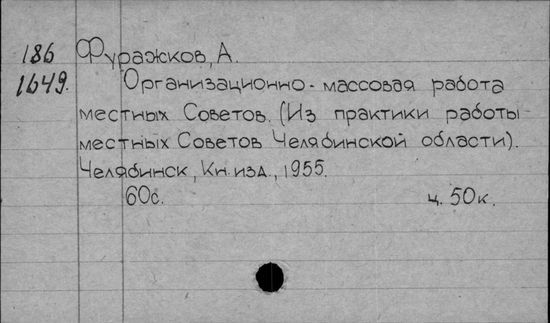 186 Фуражков, А.
1649. Организационно-массовая работа
местных Советов. (Из практики работы
местных Советов Челябинской области).
Челябинск, Кн. изд., 1955.
60с. ц. 50к.